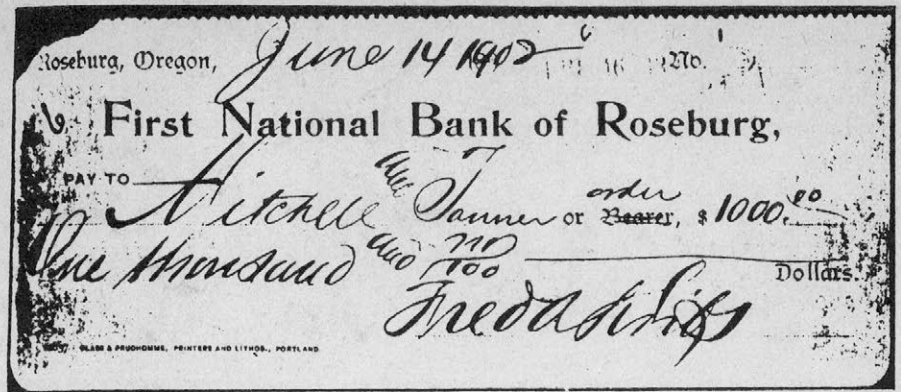 Roseburg, Oregon, June 14 1902 No. 1
First National Bank of Roseburg,
PAY TO Mitchell and Tanner or order Bearer, $1000.00
One thousand and no/100 Dollars.
Fred A
GLASS & PRUDHOMME, PRINTERS AND LITHOS., PORTLAND